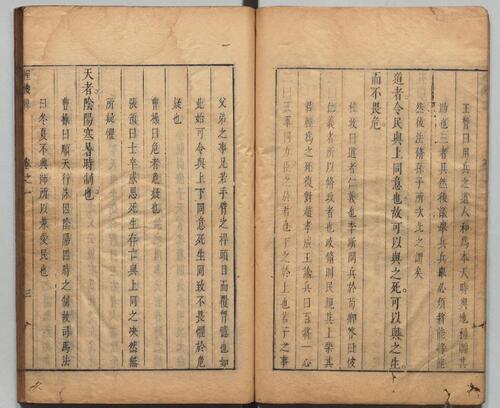 王晳曰用兵之道人和爲本天時與地利則其
助也三者具然後議舉兵兵舉必須將能將能
然後法修孫子所次此之謂矣
道者令民與上同意也故可以與之死可以與之生
而不畏危
杜牧曰道者仁義也李斯問兵於荀卿荅曰彼
仁義者所以修政者也政修則民親其上樂其
君輕爲之死復對趙孝成王論兵曰百將一心
三軍同力臣之於君也下之於上也若子之事
父弟之事兄若手臂之捍頭目而覆胷臆也如
此始可令與上下同意死生同致不畏懼於危
疑也
曹操曰危者危疑也
張預曰士卒感恩死生存亡與上同之决然無
所疑懼
天者陰陽寒暑時制也
曹操曰順天行誅因陰陽四時之制故司馬法
曰冬夏不興師所以兼愛民也
卷之一 三